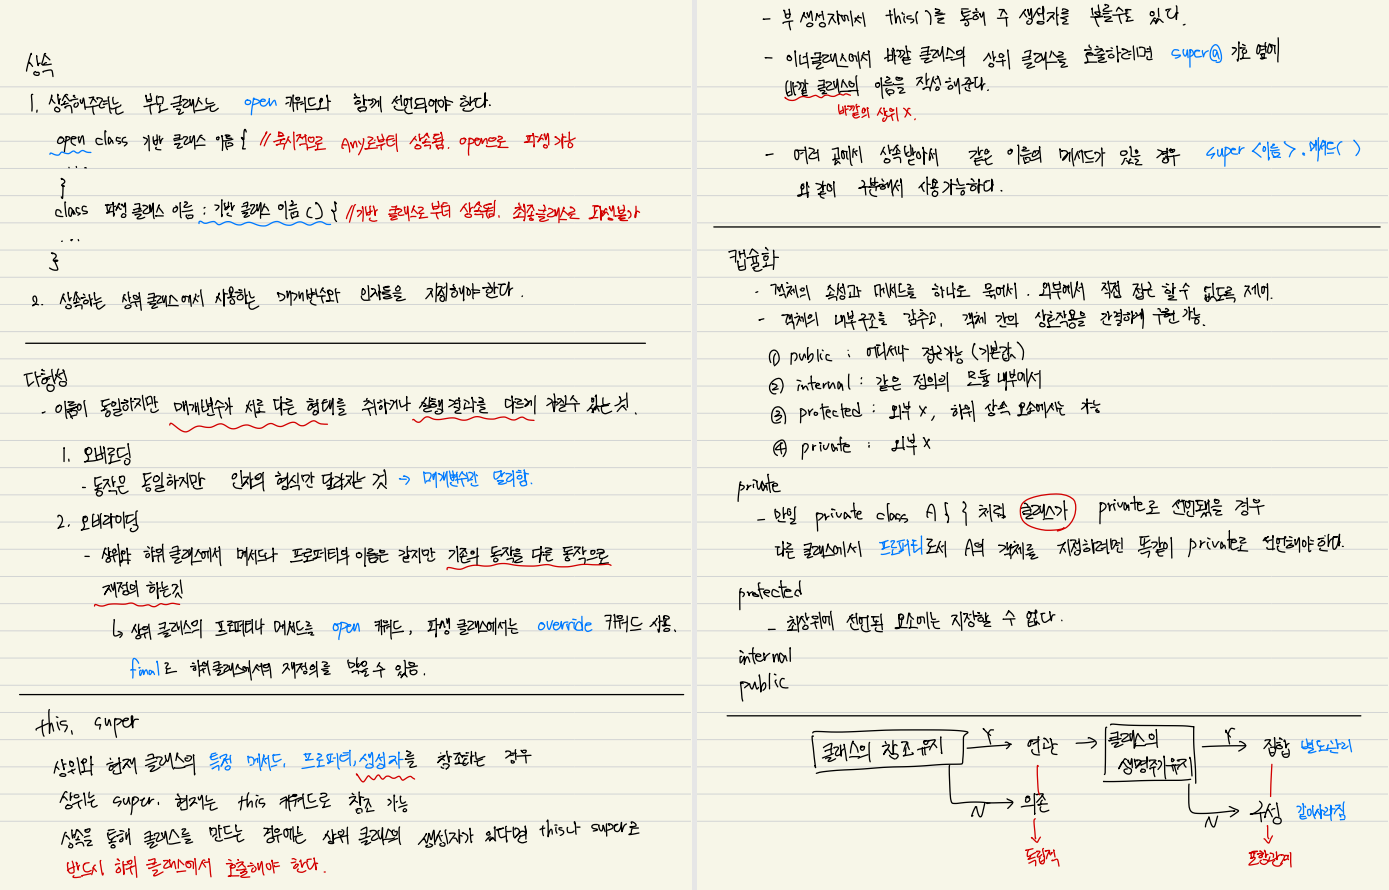 상속
1. 상속해주려는 부모 클래스는 open 키워드와 함께 선언되어야 한다.
open class 기반 클래스 이름 { //묵시적으로 Any로부터 상속됨. open으로 파생 가능
...
}
class 파생 클래스 이름 : 기반 클래스 이름 () { //기반 클래스로부터 상속됨. 최종클래스로 파생불가
...
}
2. 상속하는 상위 클래스에서 사용하는 매개변수와 인자들을 지정해야 한다.
다형성
- 이름이 동일하지만 매개변수가 서로 다른 형태를 취하거나 실행 결과를 다르게 가질수 있는 것.
1. 오버로딩
- 동작은 동일하지만 인자의 형식만 달라지는 것 → 매개변수만 달리함.
2. 오버라이딩
- 상위와 하위 클래스에서 메서드나 프로퍼티의 이름은 같지만 기존의 동작을 다른 동작으로
재정의 하는것
↳ 상위 클래스의 프로퍼티나 메서드는 open 키워드, 파생 클래스에서는 override 키워드 사용.
final로 하위클래스에서의 재정의를 막을 수 있음.
this, super
상위와 현재 클래스의 특정 메서드, 프로퍼티, 생성자를 참조하는 경우
상위는 super. 현재는 this 키워드로 참조 가능
상속을 통해 클래스를 만드는 경우에는 상위 클래스의 생성자가 있다면 this나 super로
반드시 하위 클래스에서 호출해야 한다.
- 부 생성자에서 this()를 통해 주 생성자를 부를수도 있다.
- 이너클래스에서 바깥 클래스의 상위 클래스를 호출하려면 super@ 기호 옆에
바깥 클래스의 이름을 작성해준다.
바깥의 상위 X.
- 여러 곳에서 상속받아서 같은 이름의 메서드가 있을 경우 super<이름>.메서드()
와 같이 구분해서 사용가능하다.
캡슐화
- 객체의 속성과 메서드를 하나로 묶어서. 외부에서 직접 접근 할 수 없도록 제어.
- 객체의 내부구조를 감추고, 객체 간의 상호작용을 간결하게 구현 가능.
① public : 어디서나 접근가능 (기본값)
② internal : 같은 정의의 모듈 내부에서
③ protected : 외부 X, 하위 상속 요소에서는 가능
④ private : 외부 X
private
- 만일 private class A { } 처럼 클래스가 private로 선언됐을 경우
다른 클래스에서 프로퍼티로서 A의 객체를 지정하려면 똑같이 private로 선언해야 한다.
protected
- 최상위에 선언된 요소에는 지정할 수 없다.
internal
public
클래스의 참조 유지 Y → 연관 → 클래스의 생명주기 유지 Y → 집합 별도관리
N → 의존 N → 구성 같이사라짐
독립적 포함관계